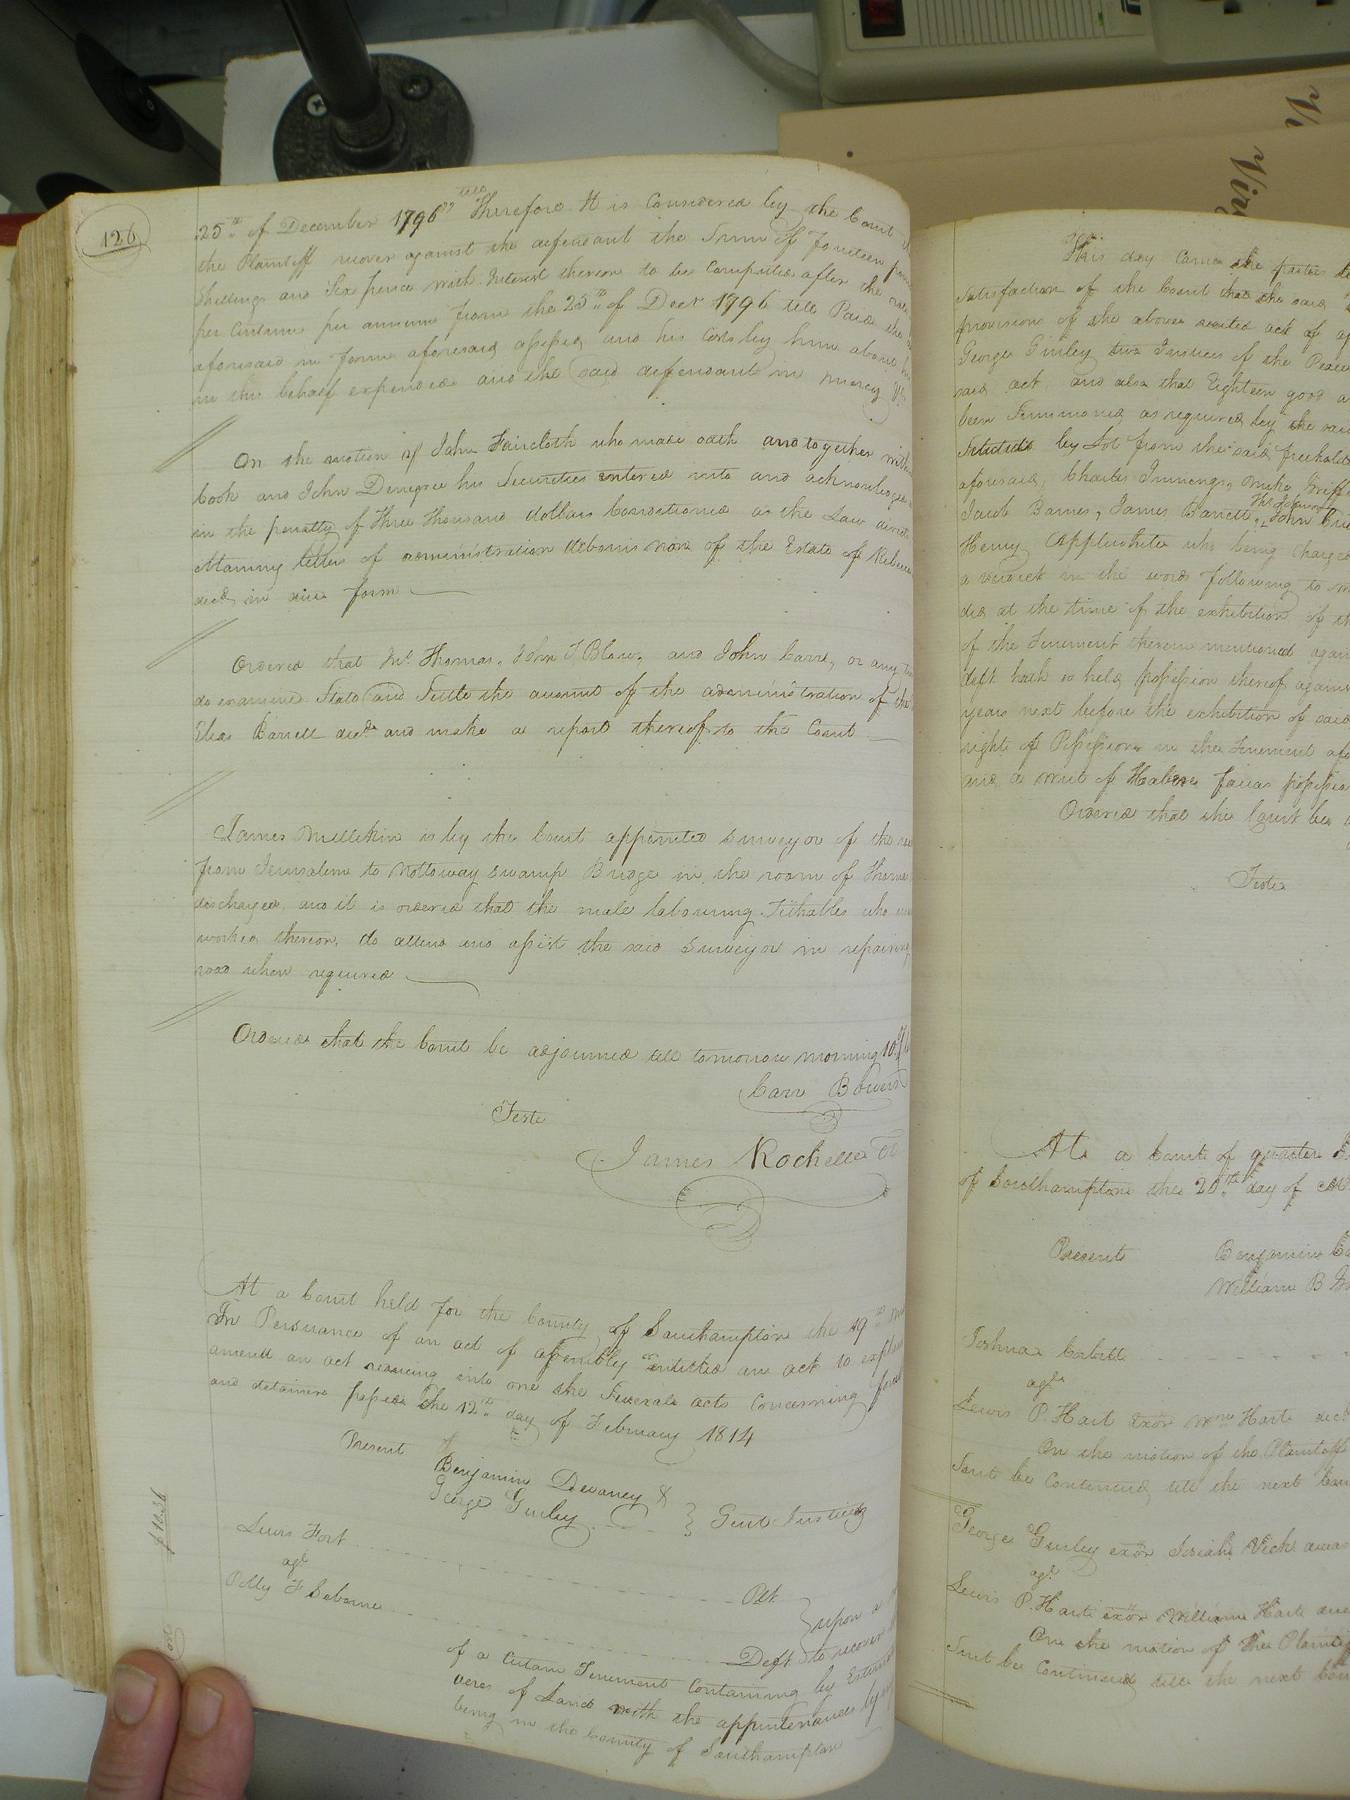 126
25th of December 1796 till Therefore It is Considered by the Court
the Plaintiff recover against the defendant the Sum of Fourteen
Shillings and Six pence with Interest thereon to be Computed after the
per Centum per annum from the 25th of Decr 1796 till Paid the
aforesaid in form aforesaid assessed and his Costs by him about
in this behalf expended and the said defendant in mercy
On the motion of John Faircloth who made oath and together with
Cook and John Denegree his Securities entered into and acknowledged
in the penalty of Three Thousand dollars Conditioned as the Law directs
obtaining letters of administration debonis non of the Estate of Rebecca
decd in due form
Ordered that Thomas, John T Blow, and John Carr, or any
do examine State and Settle the account of the administration of the
Elias Barrett decd and make a report thereof to the Court
James Millikin is by the Court appointed Surveyor of the
from Jerusalem to Nottoway Swamp Bridge in the room of Thomas
discharged, and it is ordered that the male labouring Tithables who
worked thereon, do attend and assist the said Surveyor in repairing
road when required
Ordered that the Court be adjourned till tomorrow morning 10
Carr Bowers
Teste
James Rochelle
At a Court held for the County of Southampton the 19th
In Persuance of an act of assembly Entitled an act to explain
amend an act reducing into one the Several acts Concerning
and detainers passed the 12th day of February 1814
Present
Benjamin Devaney &
George Gurley } Gent. Justices
Lewis Fort Plt
agt
Polly F Coborne Deft
upon a
to recover
of a Certain Tenement Containing by Estimation
acres of Land with the appurtenances
being in the County of Southampton
$10.36
This day Came the parties
Satisfaction of the Court that the said
provision of the above recited act of
George Gurley two Justices of the Peace
said act, and also that Eighteen good
been Summoned as required by the said
Selected by Lot from the said freeholders
aforesaid, Charles Jennings,
Jacob Barnes, James Barrett, John
Henry Applewhite who being Charged
a verdict in the words following to
did at the time of the exhibition of
of the Tenement therein mentioned
deft hath so held possession thereof
years next before the exhibition of said
right of Possession in the Tenement
and a writ of Habere facias possessionem
Ordered that the Court be
Teste
At a Court of quarter
of Southampton the 20th day of
Present Benjamin
William B
Joshua Corbitt
agt
Lewis P. Hart Exor Wm Hart decd
On the motion of the Plaintiff
Suit be Continued till the next
George Gurley exor Josiah Vick
agt
Lewis P. Hart exor William Hart
On the motion of the Plaintiff
Suit be Continued till the next